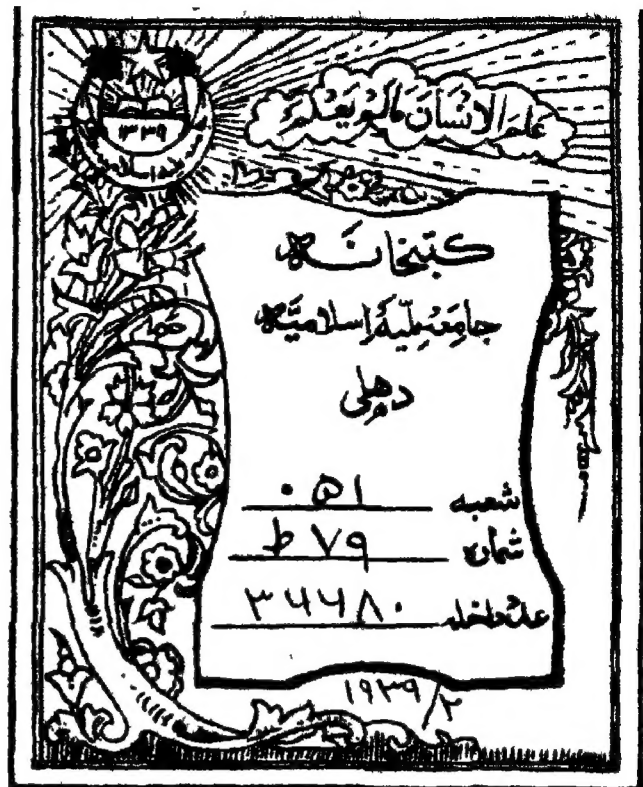 عَلَّمَ الْاِنْسَانَ مَالَمْ يَعْلَمْ
۱۳۳۹
کتبخانہ
جامعہ ملّیہ اسلامیّہ
دہلی
شعبہ ۰۵۱
شمارہ ۷۹ ط
عدد داخلہ ۳۶۶۸۰
۱۹۳۹/۲